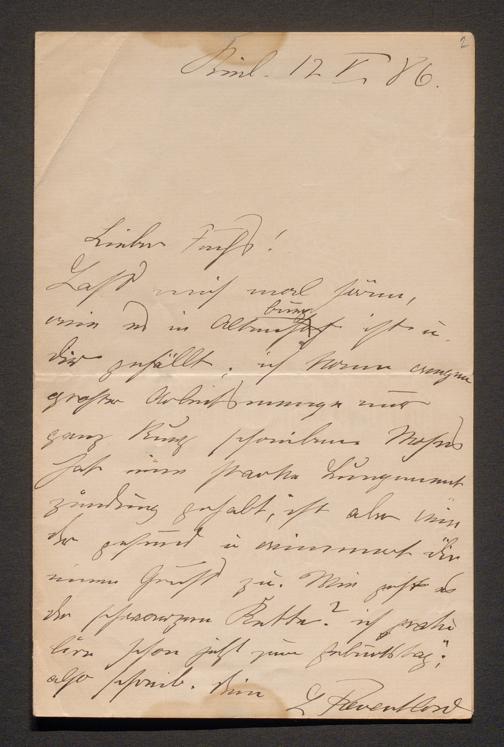 2
Kiel. 12 V. 86.
Lieber Fuchs!
Laß mich mal hören,
wie es in Altenburg ist u.
dir gefällt; ich kann wegen
großer Arbeitsmenge nur
ganz kurz schreiben.
hat eine starke Lungenent
zündung gehabt, ist aber wie
der gesund u
einen Gruß zu. Wie geht es
der schwarzen Ratte? ich
liere schon jetzt zum Geburtstag;
also schreib. Dein
L Reventlow